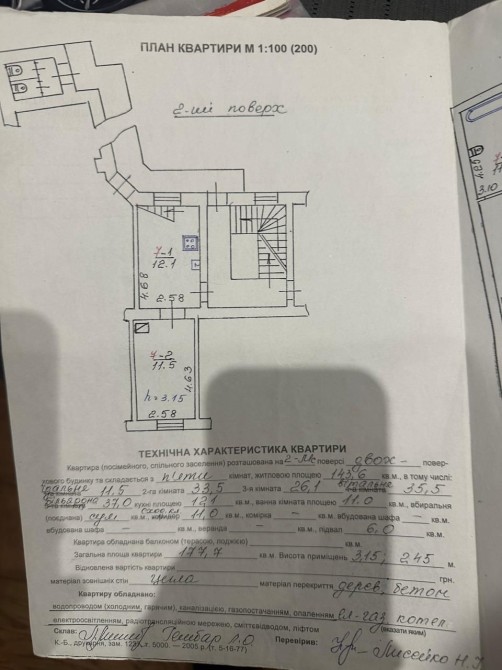 ПЛАН КВАРТИРИ М 1:100 (200)
2-ий поверх
7-1
12.1
4.68
2.58
7-2
11.5
4.63
h = 3.15
2.58
4.20
3.10
ТЕХНІЧНА ХАРАКТЕРИСТИКА КВАРТИРИ
Квартира (посімейного, спільного заселення) розташована на 2-му поверсі двох- повер-
хового будинку та складається з п'яти кімнат, житловою площею 143,6 кв.м., в тому числі:
1-а кімната 11,5 2-га кімната 33,5 3-я кімната 26,1 4-а кімната 35,5
5-а кімната 37,0 кухні площею 12,1 кв.м., ванна кімната площею 11,0 кв.м., вбиральня
(поєднана) сум. кв.м., коридор 11,0 кв.м., комірка – кв.м., вбудована шафа – кв.м.
вбудована шафа – кв.м., веранда – кв.м., підвал 6,0 кв.м.
Квартира обладнана балконом (терасою, лоджією) кв.м.
Загальна площа квартири 177,7 кв.м. Висота приміщень 3,15; 2,45 м.
Відновлена вартість квартири грн.
матеріал зовнішніх стін цегла матеріал перекриття дерев, бетон
Квартиру обладнано:
водопроводом (холодним, гарячим), каналізацією, газопостачанням, опаленням Ел-газ котел
електроосвітленням, радіотрансляційною мережею, сміттєвідводом, ліфтом (вказати яким)
Склав: Перевірив:
К.-Б., друкарня, зам. 1297, т. 5000. — 2005 р. (т. 5-16-77)